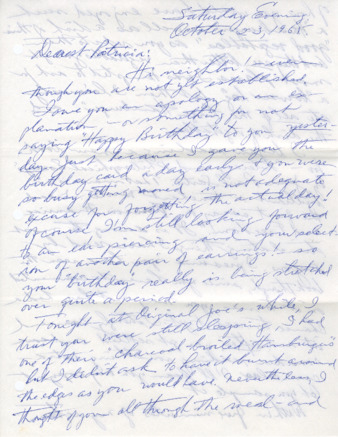 Saturday Evening
October 23, 1965.
Dearest Patricia:
Hi neighbor! - even
though you are not yet established.
I owe you an apology or an ex-
planation - or something for not
saying "Happy Birthday" to you yester-
day. Just because I gave you the
birthday card a day early & you were
so busy getting moved is not adequate
excuse for forgetting the actual day!
Of course I'm still looking forward
to an ear piercing and your select-
ion of another pair of earrings! so
your "birthday" really is being stretched
over quite a period.
Tonight at Original Joe's while, I
trust you were still sleeping, I had
one of their charcoal-broiled Hamburgers
but I didn't ask to have it burnt around
the edges as you would have. Nevertheless, I
thought of you all through the meal - and